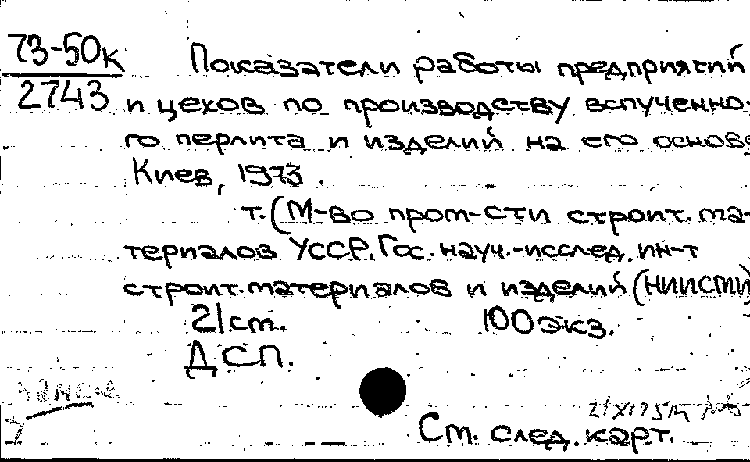 73-50к
2743
Показатели работы предприятий
и цехов по производству вспученно-
го перлита и изделий на его основе
Киев, 1973.
т. (М-во пром-сти строит. ма-
териалов УССР. Гос. науч.-исслед. ин-т
строит. материалов и изделий (НИИСМИ)
21 ст. 100 экз.
ДСП.
См. след. карт.